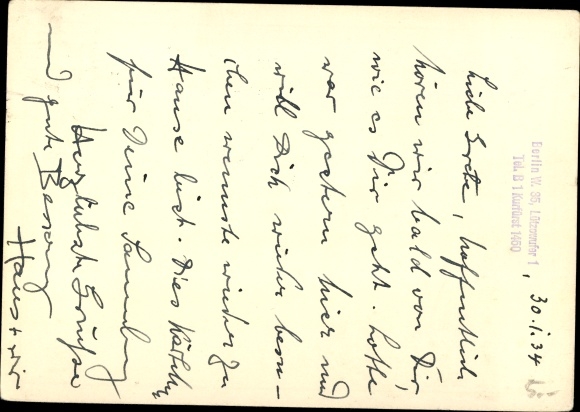 Berlin W. 35, Lützowufer 1
Tel. B 1 Kurfürst 1460
, 30.1.34
Liebe Grete, hoffentlich
hören wir bald von Dir,
wie es Dir geht. Lotte
war gestern hier und
will Dich wieder besu-
chen wenn Du wieder zu
Hause bist. Dies Kärtchen
für Deine Sammlung
Herzlichste Grüsse
und gute Besserung
Hans +